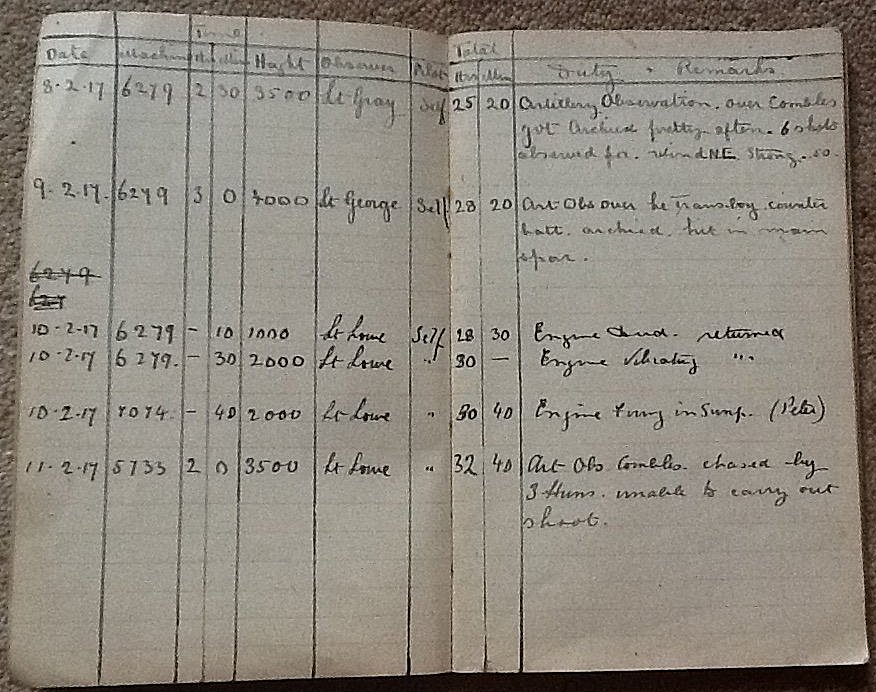 Time Total
Date Machine Hrs Min Height Observer Pilot Hrs Min Duty & Remarks
8-2-17 6279 2 30 3500 Lt Gray Self 25 20 Artillery Observation. over Combles
got Archied pretty often. 6 shots
observed for. wind NE. Strong.
9-2-17. 6279 3 0 4000 Lt George Self 28 20 Art Obs over le Transloy counter
batt. archied. hit in main
spar.
6279
10-2-17 6279 - 10 1000 Lt Lowe Self 28 30 Engine Dud. returned
10-2-17 6279. - 30 2000 Lt Lowe " 30 — Engine Vibrating "
10-2-17 7074. - 40 2000 Lt Lowe " 30 40 Engine in Sump. (Peter)
11-2-17 5733 2 0 3500 Lt Lowe " 32 40 Art Obs Combles. chased by
3 Huns. unable to carry out
shoot.